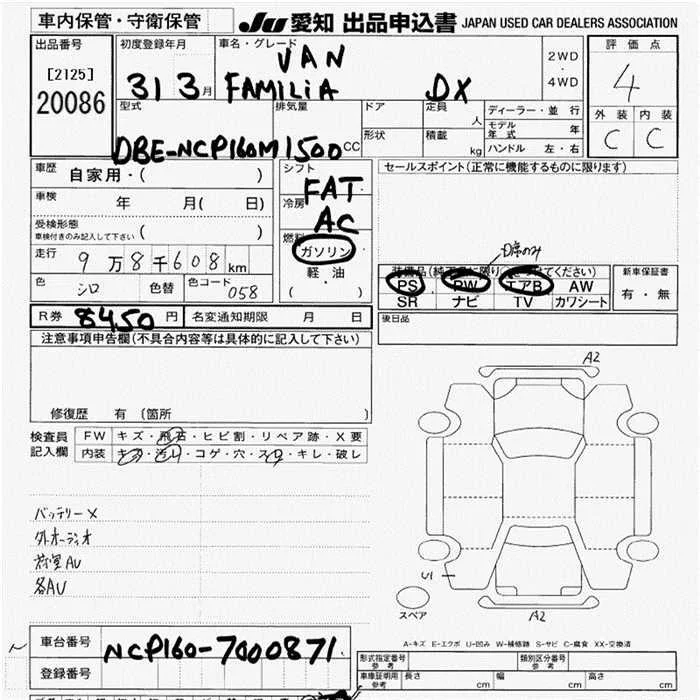 車内保管・守衛保管
JU 愛知 出品申込書 JAPAN USED CAR DEALERS ASSOCIATION
出品番号
[2125]
20086
初度登録年月
31 3月
車名・グレード
VAN
FAMILIA DX
2WD
・
4WD
評価点
4
外装 内装
C C
型式
DBE-NCP160M
排気量
1500cc
ドア
形状
定員 人
積載 kg
ディーラー・並行
モデル年式 年
ハンドル 左・右
車歴
自家用・( )
車検
年 月( 日)
受検形態
車検付きのみ記入して下さい ( )
走行
9万8千608km
色 シロ 色替 色コード 058
シフト
FAT
冷房
AC
燃料
ガソリン
軽油
( )
セールスポイント(正常に機能するものに限ります)
D席のみ
PS PW エアB AW
SR ナビ TV カワシート
新車保証書
有・無
R券 8450円 名変通知期限 月 日
後日品
注意事項申告欄(不具合内容等は具体的に記入して下さい)
修復歴 有 (箇所 )
検査員記入欄
FW キズ・飛石・ヒビ割・リペア跡・X要
内装 キズ・汚レ・コゲ・穴・スレ・キレ・破レ
バッテリーX
外オーディオ
荷室AU
各AU
A2
U1
スペア
A2
A-キズ E-エクボ U-凹み W-補修跡 S-サビ C-腐食 XX-交換済
車台番号
NCP160-7000871
登録番号
形式指定番号 参考
類別区分番号 参考
車庫証明用 参考 長さ cm 幅 cm 高さ cm